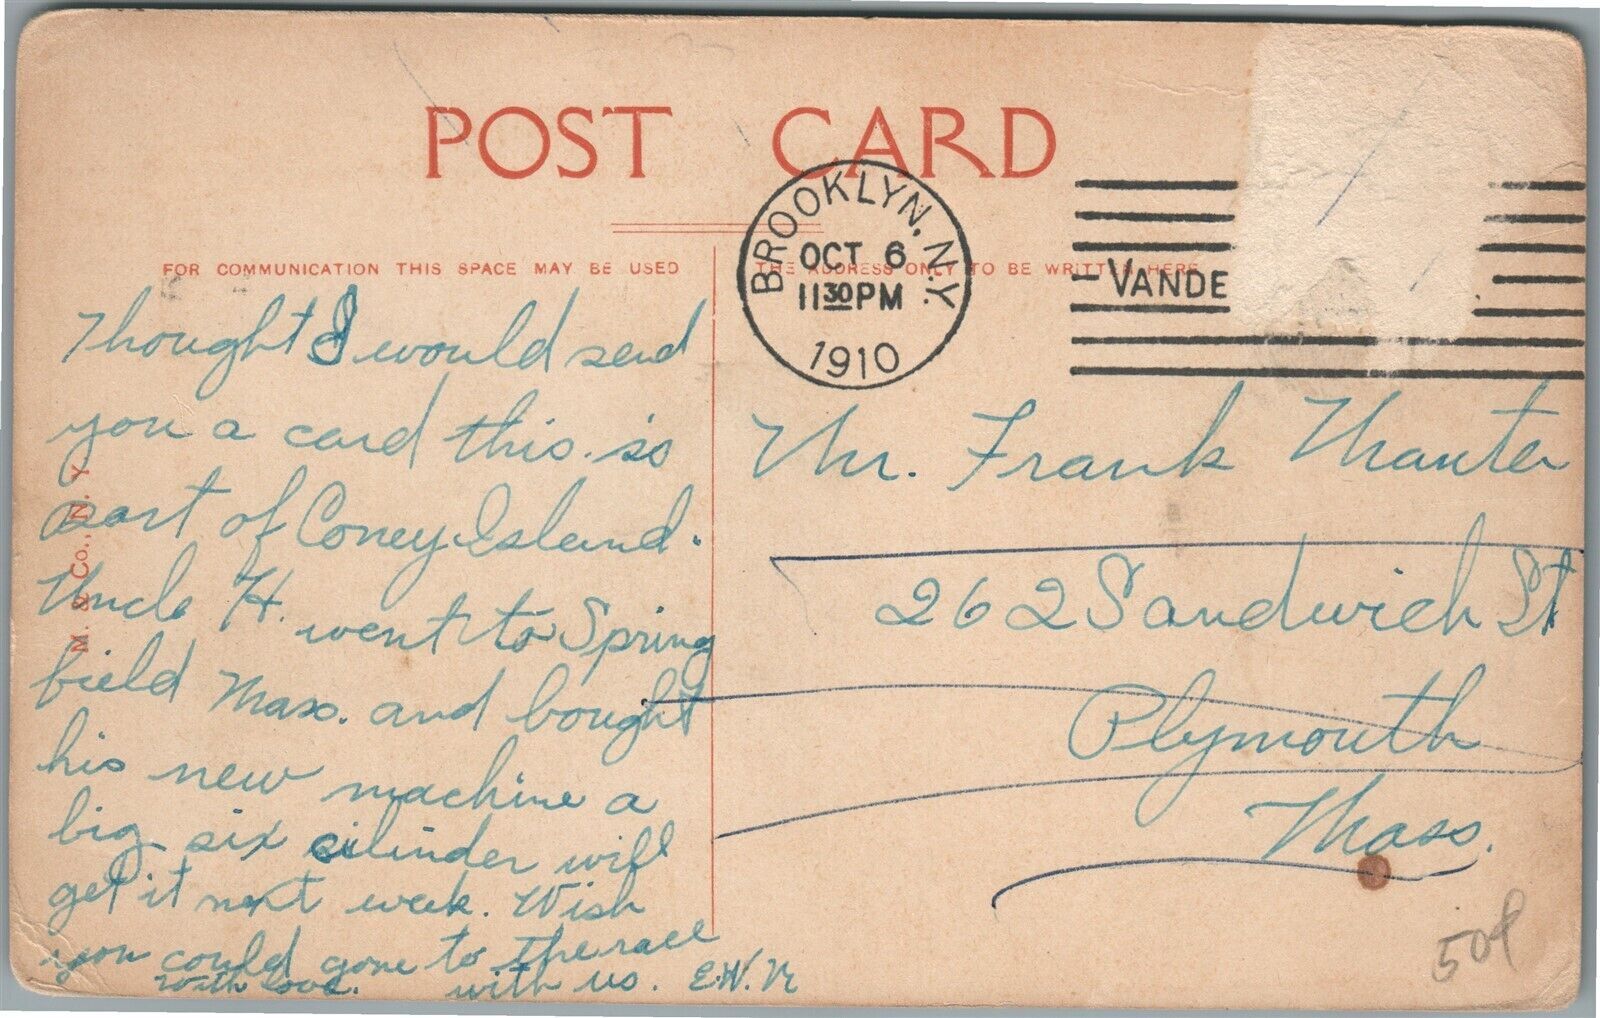 POST CARD
BROOKLYN, N.Y.
OCT 6
11 30 PM
1910
VANDE
FOR COMMUNICATION THIS SPACE MAY BE USED
THE ADDRESS ONLY TO BE WRITTEN HERE
Thought I would send
you a card this is
part of Coney Island.
Uncle H. went to Spring
field Mass. and bought
his new machine a
big six cilinder will
get it next week. Wish
you could gone to the race
with love. with us. E.W.
M. & Co., N. Y
Mr. Frank Manter
262 Sandwich St
Plymouth
Mass.
50¢